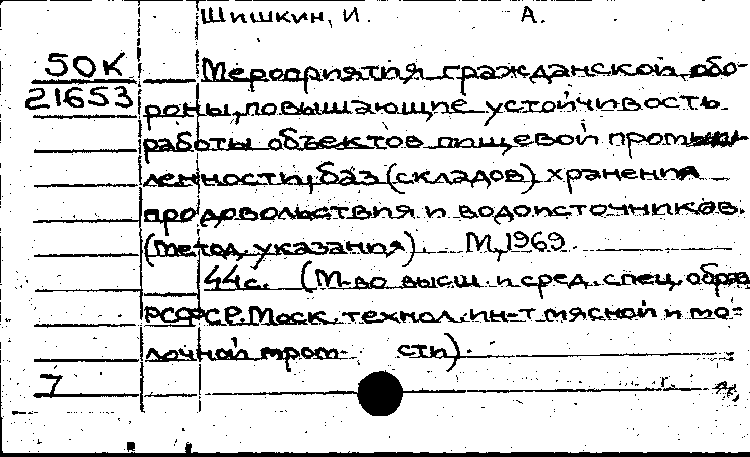 Шишкин, И. А.
50К Мероприятия гражданской обо-
21653 роны, повышающие устойчивость
работы объектов пищевой промыш-
ленности, баз (складов) хранения
продовольствия и водоисточников.
(Метод. указания). М., 1969.
44с. (М-во высш. и сред. спец. образ.
РСФСР. Моск. технол. ин-т мясной и мо-
лочной пром-сти).
7